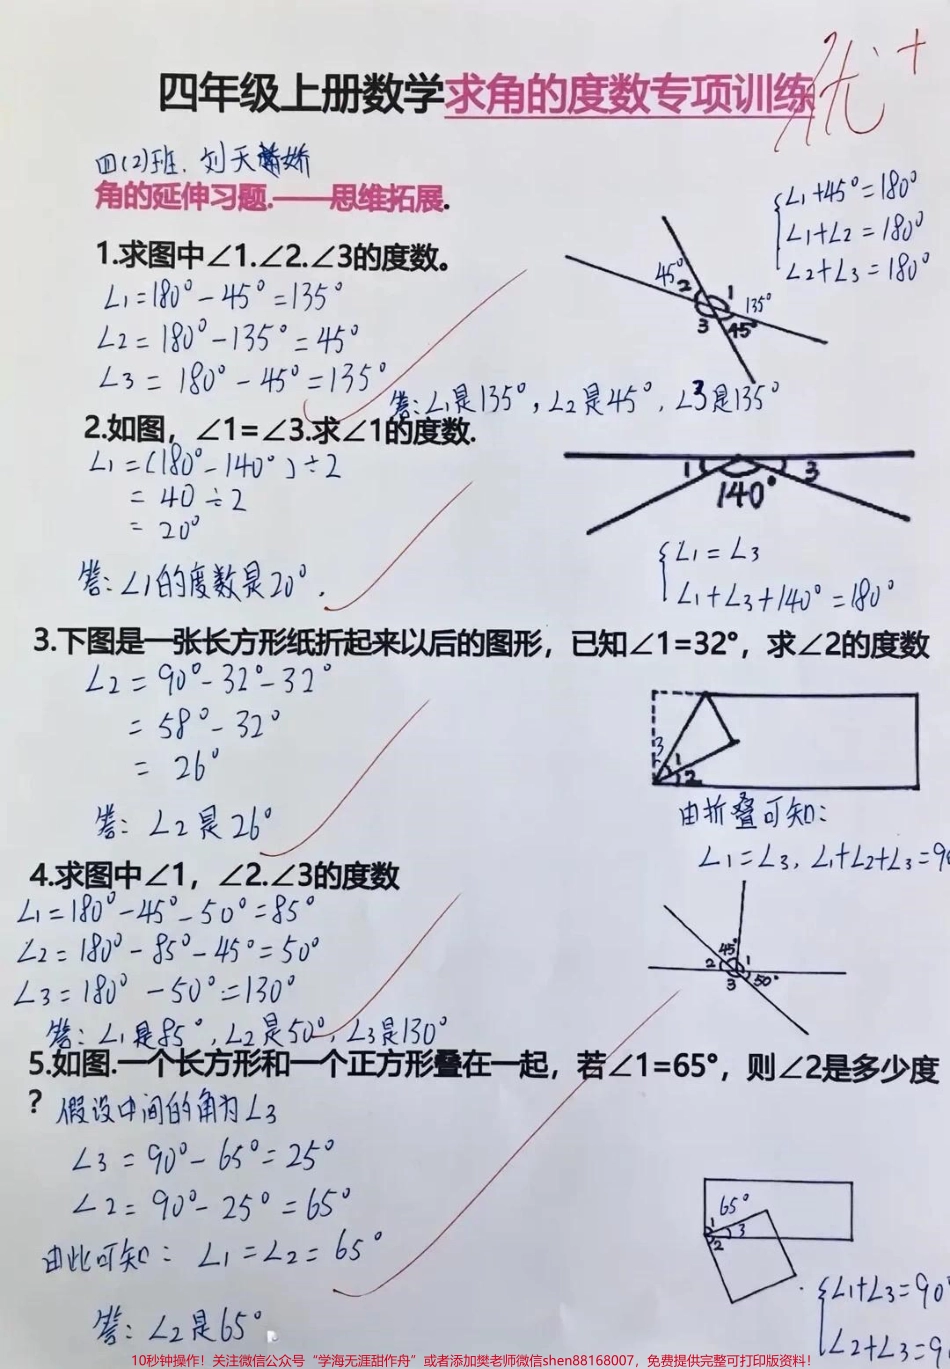 优+
四年级上册数学求角的度数专项训练
四(2)班. 刘天娇
角的延伸习题.——思维拓展.
∠1+45°=180°
∠1+∠2=180°
∠2+∠3=180°
1.求图中∠1.∠2.∠3的度数。
∠1=180°-45°=135°
∠2=180°-135°=45°
∠3=180°-45°=135°
45° 2 1 135°
3 45°
答:∠1是135°,∠2是45°,∠3是135°
2.如图，∠1=∠3.求∠1的度数.
∠1=(180°-140°)÷2
=40÷2
=20°
答:∠1的度数是20°.
1 140° 3
∠1=∠3
∠1+∠3+140°=180°
3.下图是一张长方形纸折起来以后的图形，已知∠1=32°，求∠2的度数
∠2=90°-32°-32°
=58°-32°
=26°
答:∠2是26°
3 1 2
由折叠可知:
∠1=∠3,∠1+∠2+∠3=90
4.求图中∠1，∠2.∠3的度数
∠1=180°-45°-50°=85°
∠2=180°-85°-45°=50°
∠3=180°-50°=130°
答:∠1是85°,∠2是50°,∠3是130°
45°
2 1
3 50°
5.如图.一个长方形和一个正方形叠在一起，若∠1=65°，则∠2是多少度
？
假设中间的角为∠3
∠3=90°-65°=25°
∠2=90°-25°=65°
由此可知:∠1=∠2=65°
答:∠2是65°
65°
1 3
2
∠1+∠3=90
∠2+∠3=9
10秒钟操作！关注微信公众号“学海无涯甜作舟”或者添加樊老师微信shen88168007，免费提供完整可打印版资料！